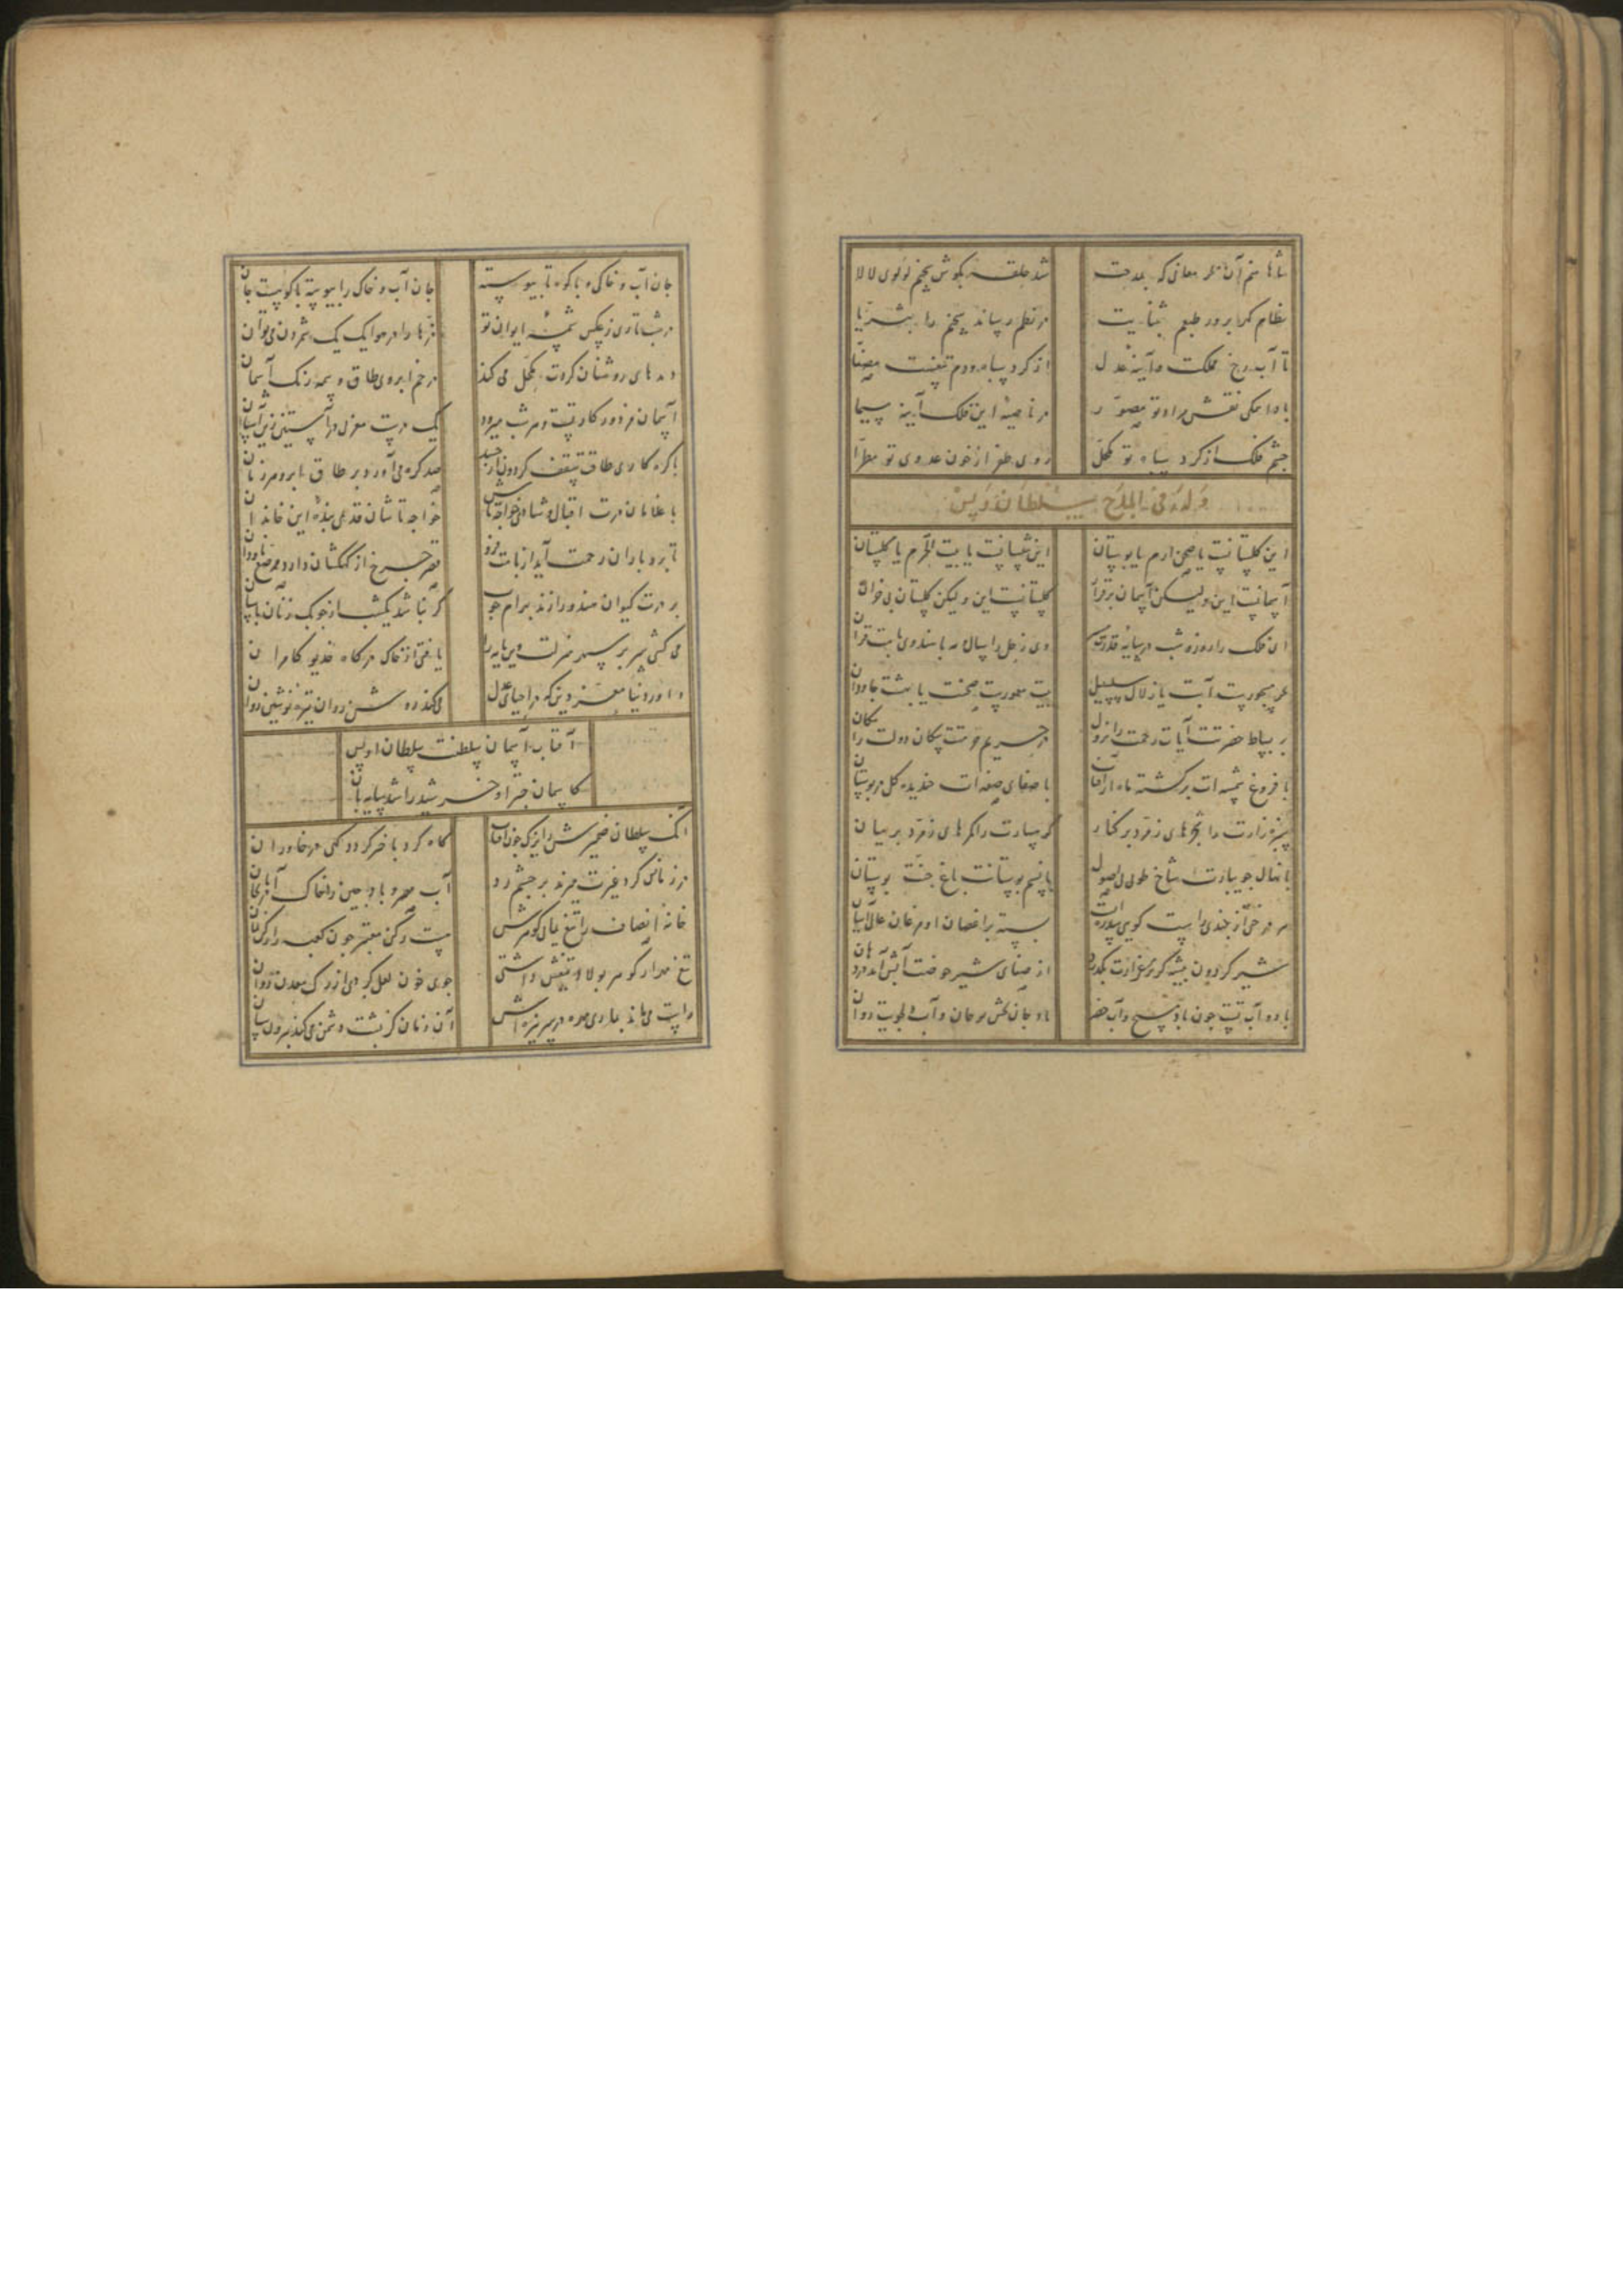 شاها منم آن بحر معانی که بمدحت شد حلقه بگوش سخنم لولوی لالا
نظام کهر پرور طبعم بثنایت در نظم رساند سخن را بثریا
تا آب رخ مملکت و آینه عدل از کرد سپاه و دم تیغست مصفا
بادا همکی نقش مراد تو مصور در ناصیه این فلک آینه سیما
چشم فلک از کرد سپاه تو مکحل روی ظفر از خون عدوی تو مطرا
وله فی المدح سلطان اویس
این کلستانست یا صحن ارم یا بوستان این شبستانست یا بیت الحرم یا کلستان
آسمانست این ولیکن آسمان برقرار کلستانست این ولیکن کلستان بی خزان
ای فلک را روز و شب در سایه قدرت وی زحل را سال و مه با هندوی بامت قران
بحر مسجورست آبت یا زلال سلسبیل بیت معمورست صحنت یا بهشت جاودان
بر بساط حضرتت آیات رحمت را نزول در حریم حرمتت سکان دولت را مکان
با فروغ شمسه ات برکشته ماه از آفتاب با صفای صفه ات خندیده کل در بوستان
سبزه زارت را بحرهای زمرد بر کنار کوهسارت را کمرهای زمرد بر میان
با نهال جویبارت شاخ طوبی بی اصول با نسیم بوستانت باغ جنت بوستان
هر درختی از بلندی راست کویی سدره ایست بسته بر اغصان او مرغان عالی آشیان
شیر کردون بیشه کر در مرغزارت بکذرد از صفای شیر حوضت آبش آید در دهان
باد و آب تست چون باد مسیح و آب خضر باد جان بخش مرجان و آب دلجویت روان
جان آب و خاک و با کویت پیوسته جان آب و خاک را پیوسته با کویست جان
در شب تاری ز عکس شمسه ایوان تو ذره ها را در هوا یک یک شمردن می توان
دیده های روشنان کردت مکحل می کند در خم ابروی طاق وسمه رنک آسمان
آسمان مزدور کار تست و هر شب میبرد یک درست مغربی در آستین زین آستان
با کره کاری طاقت سقف کردون ار رسید صد کره می آورد بر طاق ابرو هر زمان
با غلامان درت اقبال و شاهی خواجه تاش خواجه تاشان قدیمی بنده این خاندان
تا برد باران رحمت آید از بامت فرو قصر چرخ از کهکشان دارد مرصع ناودان
بر درت کیوان هندو را زند بهرام چوب کر نباشد یکشب از چوبک زنان پاسبان
می کشی سر بر سپهر منزلت وین مایه را یافتی از خاک درکاه خدیو کامران
داور دنیا معز دین که در احیای عدل می کند روشن روان تیره نوشین روان
آفتاب آسمان سلطنت سلطان اویس
کاسمان چتر او خورشید را شد سایه بان
آنک سلطان ضمیرش را یزک چون آفتاب کاه کرد باختر کردد کهی در خاوران
در زمانش کرد غیرت میزند بر چشم رو آب مهر و باد چین و خاک آذربایجان
خانه انصاف را تیغ یمانی کوهرش هست رکن معتبر چون کعبه را رکن یمان
تیغ او کوهر پولاد تیغش داشتی جوی خون لعل کبری از رک معدن روان
راست می ماند بماری مهره در سر نیزه اش آن زمان کز پشت دشمن می کند بیرون سنان